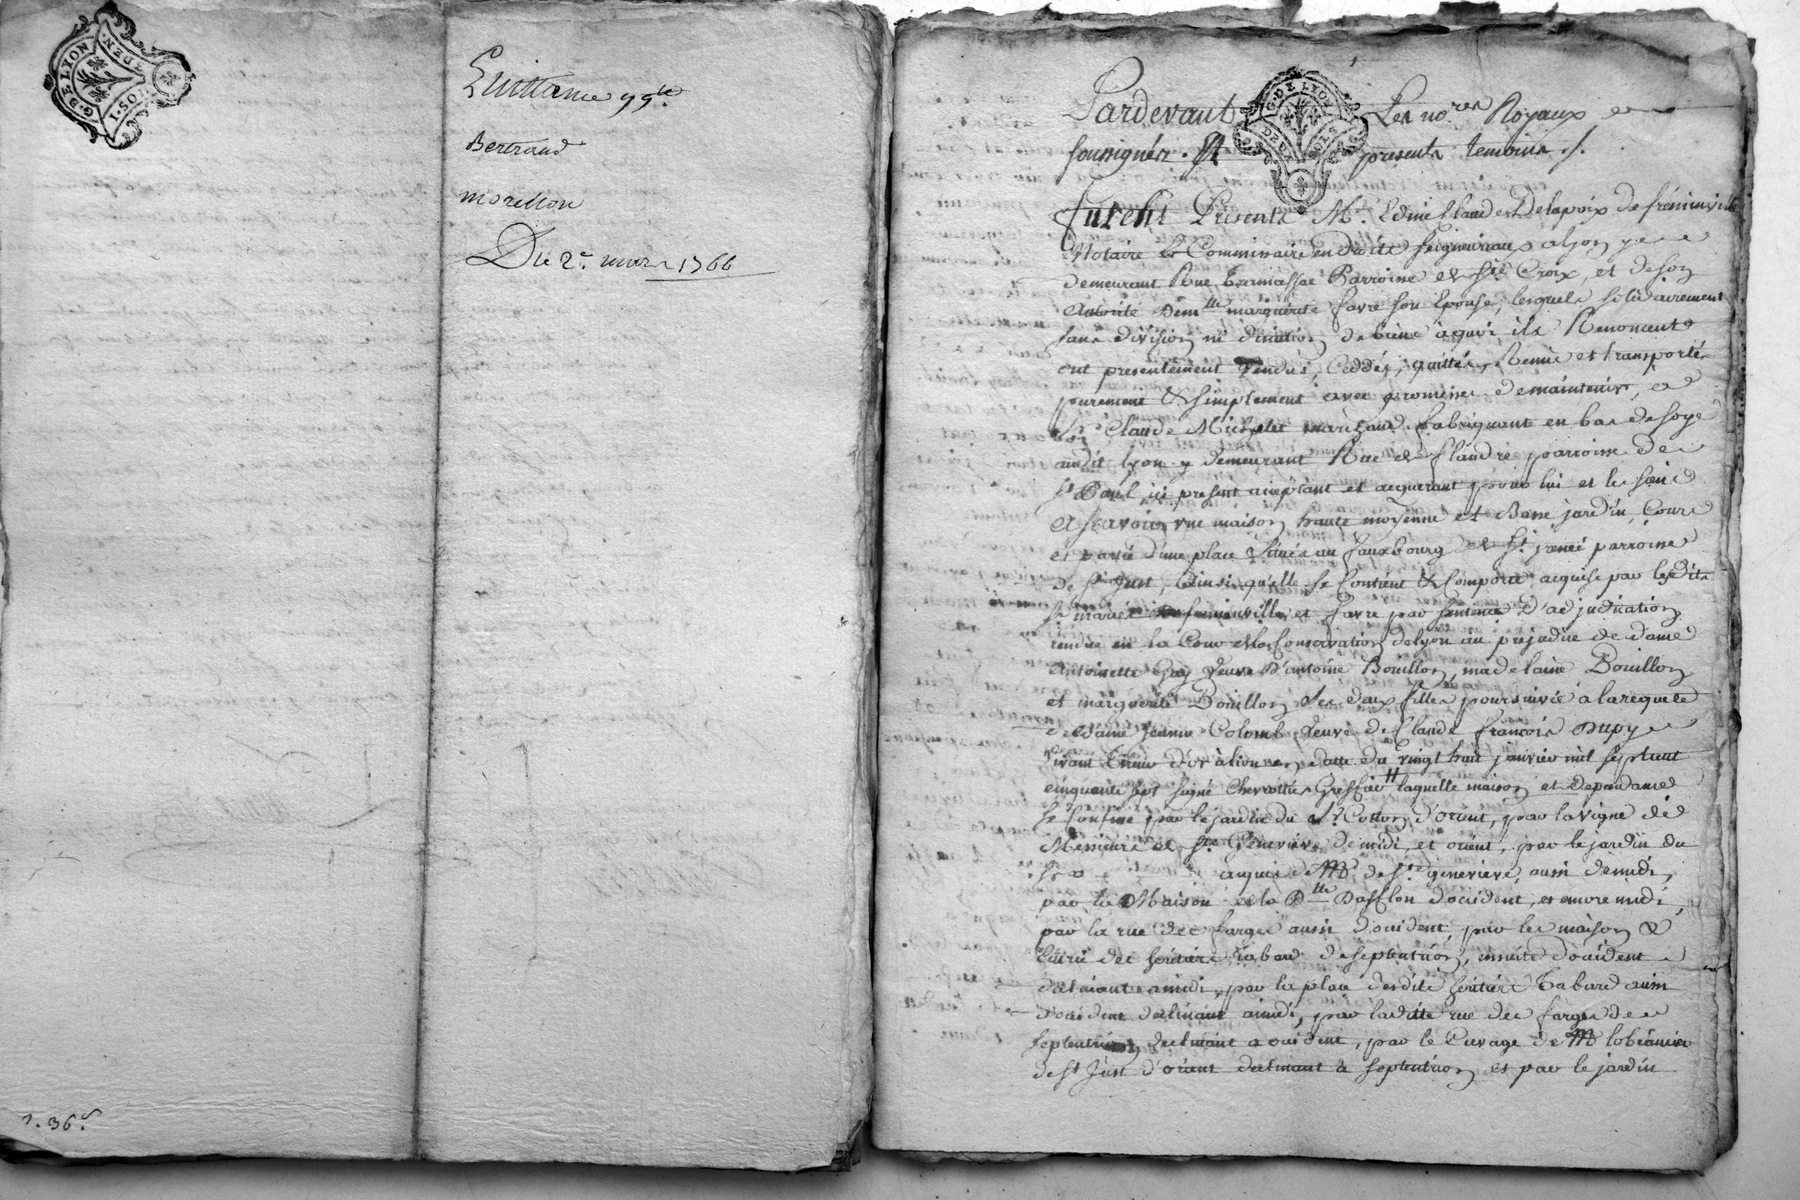 G. DE LYON
1. SOL. DEN.
Quittance 99.te
Bertrand
Morellon
Du 2e mars 1766
1. 36
G. DE LYON
DEUX SOLS
Pardevant Les no.res Royaux
soussignés. présents temoins ./.
Furent Présents Me. Edme Claude Delapoix de fréminville
Notaire & Commissaire en droits seigneuriaux a lyon y
demeurant Rue Tramassac Parroisse de Ste Croix, et de son
autorité Demlle marguerite favre son Epouse, lesquels solidairement
sans division ni discution de biens a quoi ils Renoncent
ont presentement Vendus, Ceddés, quittés, Remis et transportés
purement & simplement avec promesse de maintenir, a
Sr. Claude Michelet marchand fabriquant en bas de soye
audit lyon y demeurant Rue de flandre parroisse de
St Paul, ici present aceptant et acquerant pour lui et les siens
Asçavoir, une maison haute moyenne et Basse jardin, Cour
et partie d'une place Située au fauxbourg de St jrenée parroisse
de St Just, Ainsi qu'elle se Contient & Comporte, acquise par lesdits
Sr mariés de freminville et favre par sentence d'adjudication
rendue en la Cour de la Conservation de lyon au prejudice de dame
Antoinette veuve d'antoine Bouillon, madelaine Bouillon
et marguerite Bouillon ses deux filles poursuivie a la requete
de dame jeanne Colomb veuve de Claude françois Dupy
vivant en datte du vingt huit janvier mil sept cent
cinquante sept signé Chevrottier Greffier laquelle maison et dependances
se confine par le jardin du Sr. Cotton d'orient, par la vigne de
Messieurs de Ste Genevieve de midi, et orient, par le jardin du
Sr acquis de MM. de Ste genevieve, aussi de midi,
par la Maison de la Dlle Dafflon d'occident, et encore midi,
par la rue des farges aussi d'occident, par les maison &
Curée des héritiers Tabard de septentrion, ensuite d'occident
declinant a midi, par la place desdits héritiers Tabard aussi
d'occident declinant a midi, par laditte rue des farges de
septentrion declinant a occident, par le Cuvage de M l'obéancier
de St Just d'orient declinant a septentrion, et par le jardin